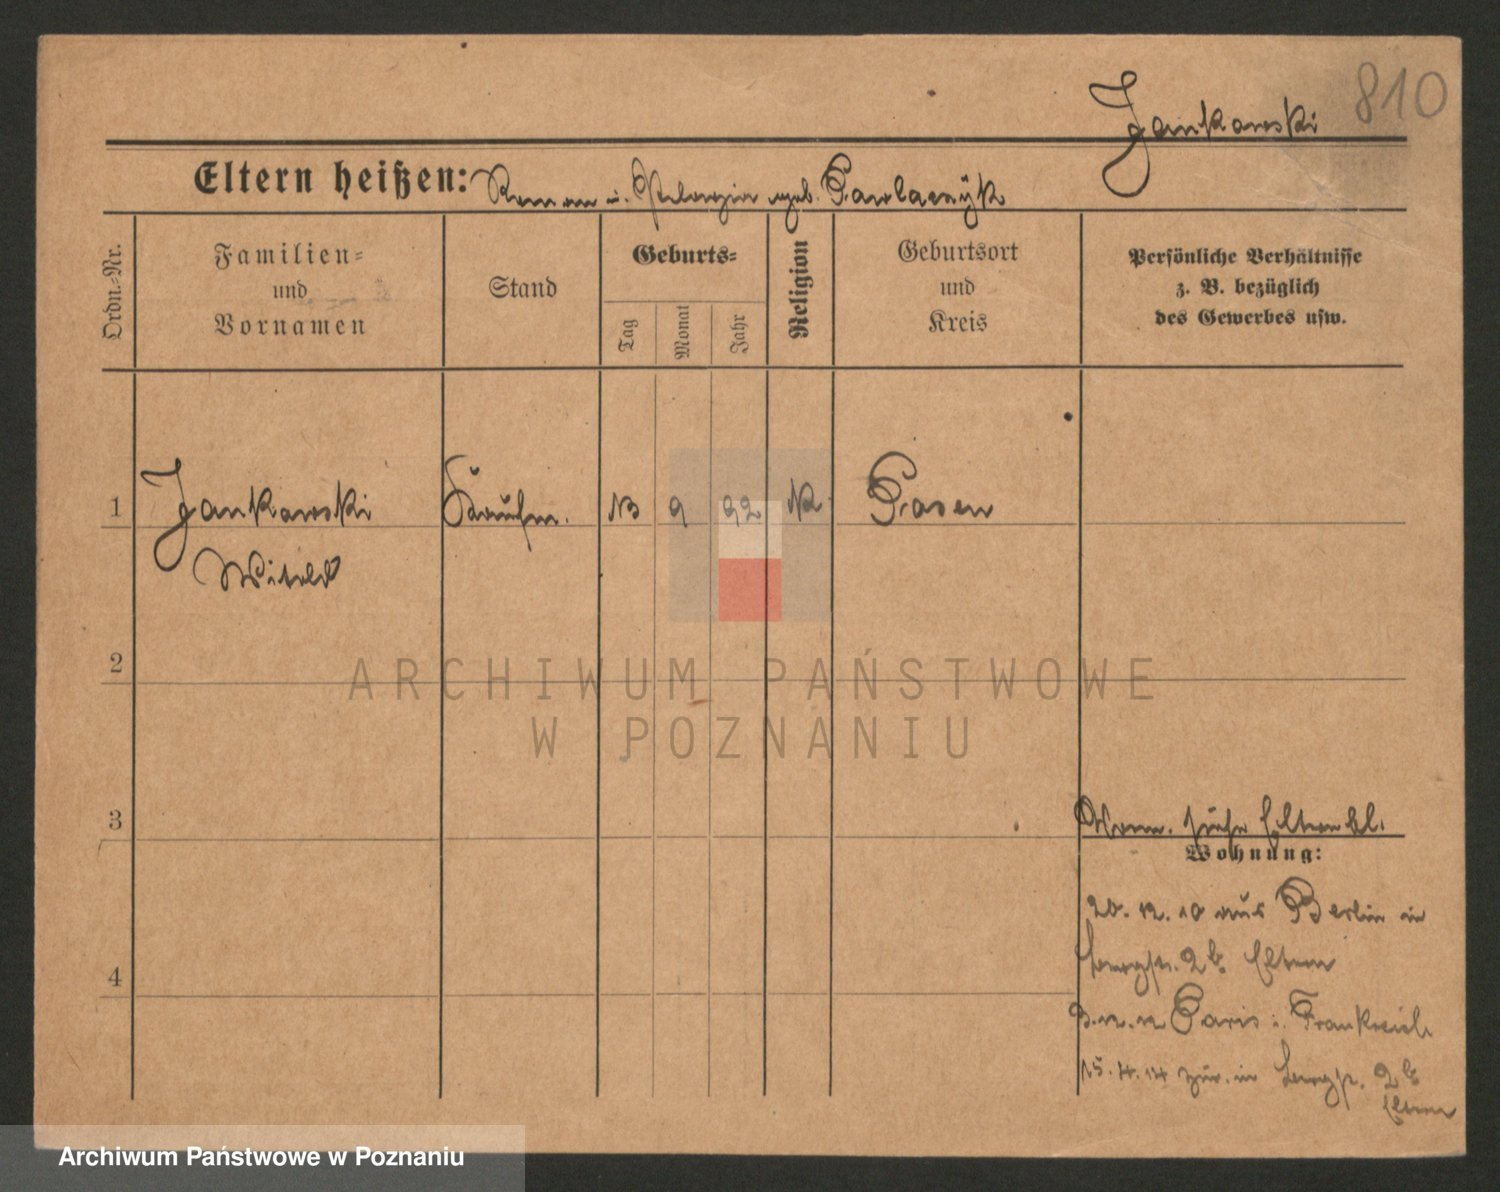 810
Jankowski
Eltern heißen: Roman u. Pelagia geb. Pawlaczÿk
Ordn.-Nr.
Familien-
und
Vornamen
Stand
Geburts-
Tag
Monat
Jahr
Religion
Geburtsort
und
Kreis
Persönliche Verhältnisse
z. B. bezüglich
des Gewerbes usw.
1 Jankowski Kaufm. 13 9 92 K Posen
Witold
2
ARCHIWUM PAŃSTWOWE
W POZNANIU
3
siehe Elternbl.
Wohnung:
20. 12. 10 aus Berlin in
2b Eltern
Paris i. Frankreich
15. 4. 14 zur. in 2b
Eltern
4
Archiwum Państwowe w Poznaniu